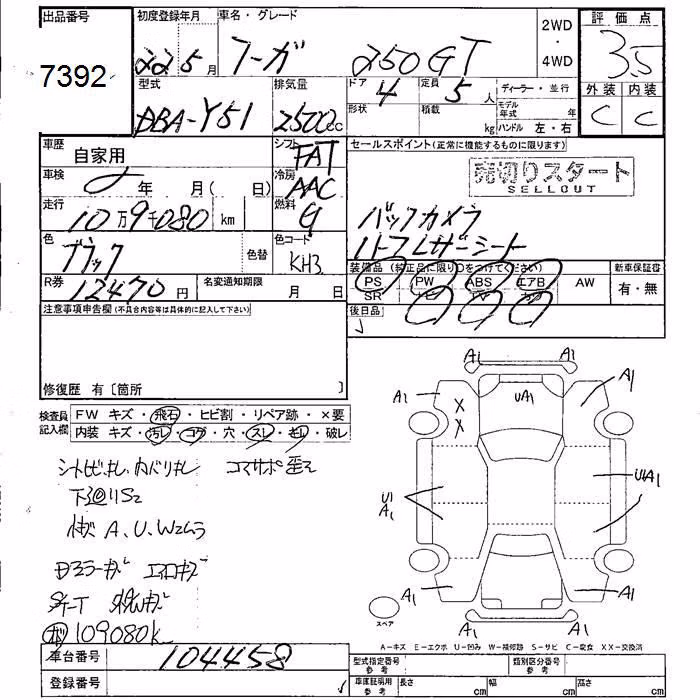 出品番号
7392
初度登録年月 22 5月
車名・グレード フーガ 250GT
2WD・4WD
評価点 3.5
外装 C 内装 C
型式 DBA-Y51
排気量 2500cc
ドア 4 形状
定員 5人 積載 kg
ディーラー・並行
モデル年式 年
ハンドル 左・右
車歴 自家用
シフト FAT
車検 年 月( 日)
冷房 AAC
走行 10万9千080 km
燃料 G
色 ブラック 色替
色コード KH3
R券 12470円
名変通知期限 月 日
セールスポイント(正常に機能するものに限ります)
売切りスタート
SELLOUT
バックカメラ
ハーフレザーシート
装備品(純正品に限り○をつけてください)
PS PW ABS エアB AW
SR ナビ TV カワ
新車保証書 有・無
後日品
注意事項申告欄(不具合内容等は具体的に記入して下さい)
修復歴 有〔箇所 〕
検査員記入欄
FW キズ・飛石・ヒビ割・リペア跡・×要
内装 キズ・汚レ・コゲ・穴・スレ・キレ・破レ
下廻りS2
A、U、W2ムラ
109080k
A1 A1
A1 UA1 A1
X
X
U1 A1
U1A1
A1 A1
A1 A1
スペア
A-キズ E-エクボ U-凹み W-補修跡 S-サビ C-腐食 XX-交換済
車台番号 104458
登録番号
型式指定番号 参考
類別区分番号 参考
車庫証明用 参考 長さ cm 幅 cm 高さ cm